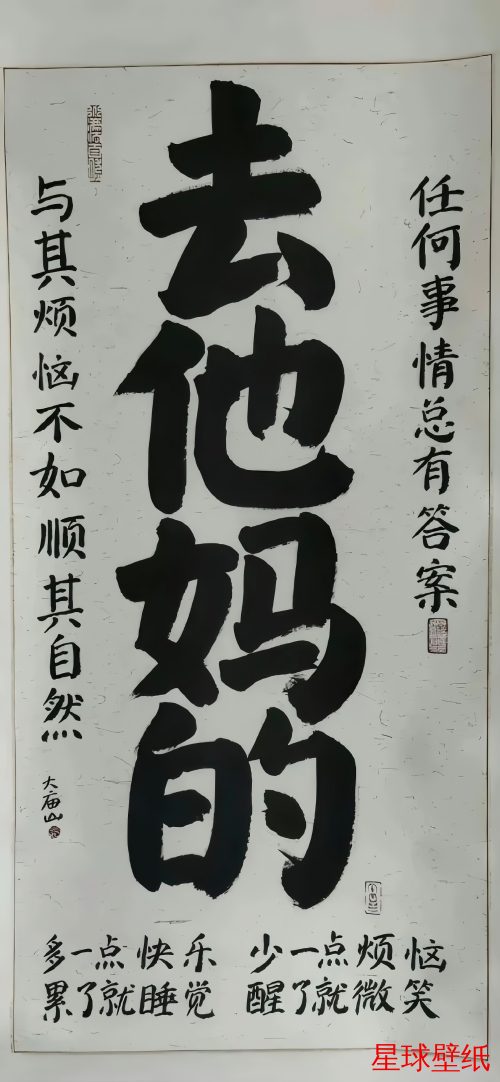 任何事情总有答案
去他妈的
与其烦恼不如顺其自然
大庙山
多一点快乐 少一点烦恼
累了就睡觉 醒了就微笑
星球壁纸